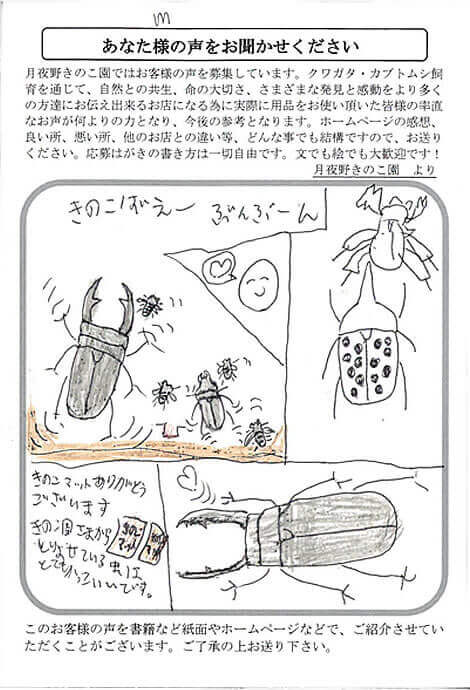 m
あなた様の声をお聞かせください
月夜野きのこ園ではお客様の声を募集しています。クワガタ・カブトムシ飼
育を通じて、自然との共生、命の大切さ、さまざまな発見と感動をより多く
の方達にお伝え出来るお店になる為に実際に用品をお使い頂いた皆様の率直
なお声が何よりの力となり、今後の参考となります。ホームページの感想、
良い所、悪い所、他のお店との違い等、どんな事でも結構ですので、お送り
ください。応募はがきの書き方は一切自由です。文でも絵でも大歓迎です！
月夜野きのこ園　より
きのこばえー　ぶんぶーん
きのこマットありがとう
ございます
きのこ園さまから
とりよせている虫は
とてもかっこいいです。
きのこ
マット
このお客様の声を書籍など紙面やホームページなどで、ご紹介させてい
ただくことがございます。ご了承の上お送り下さい。